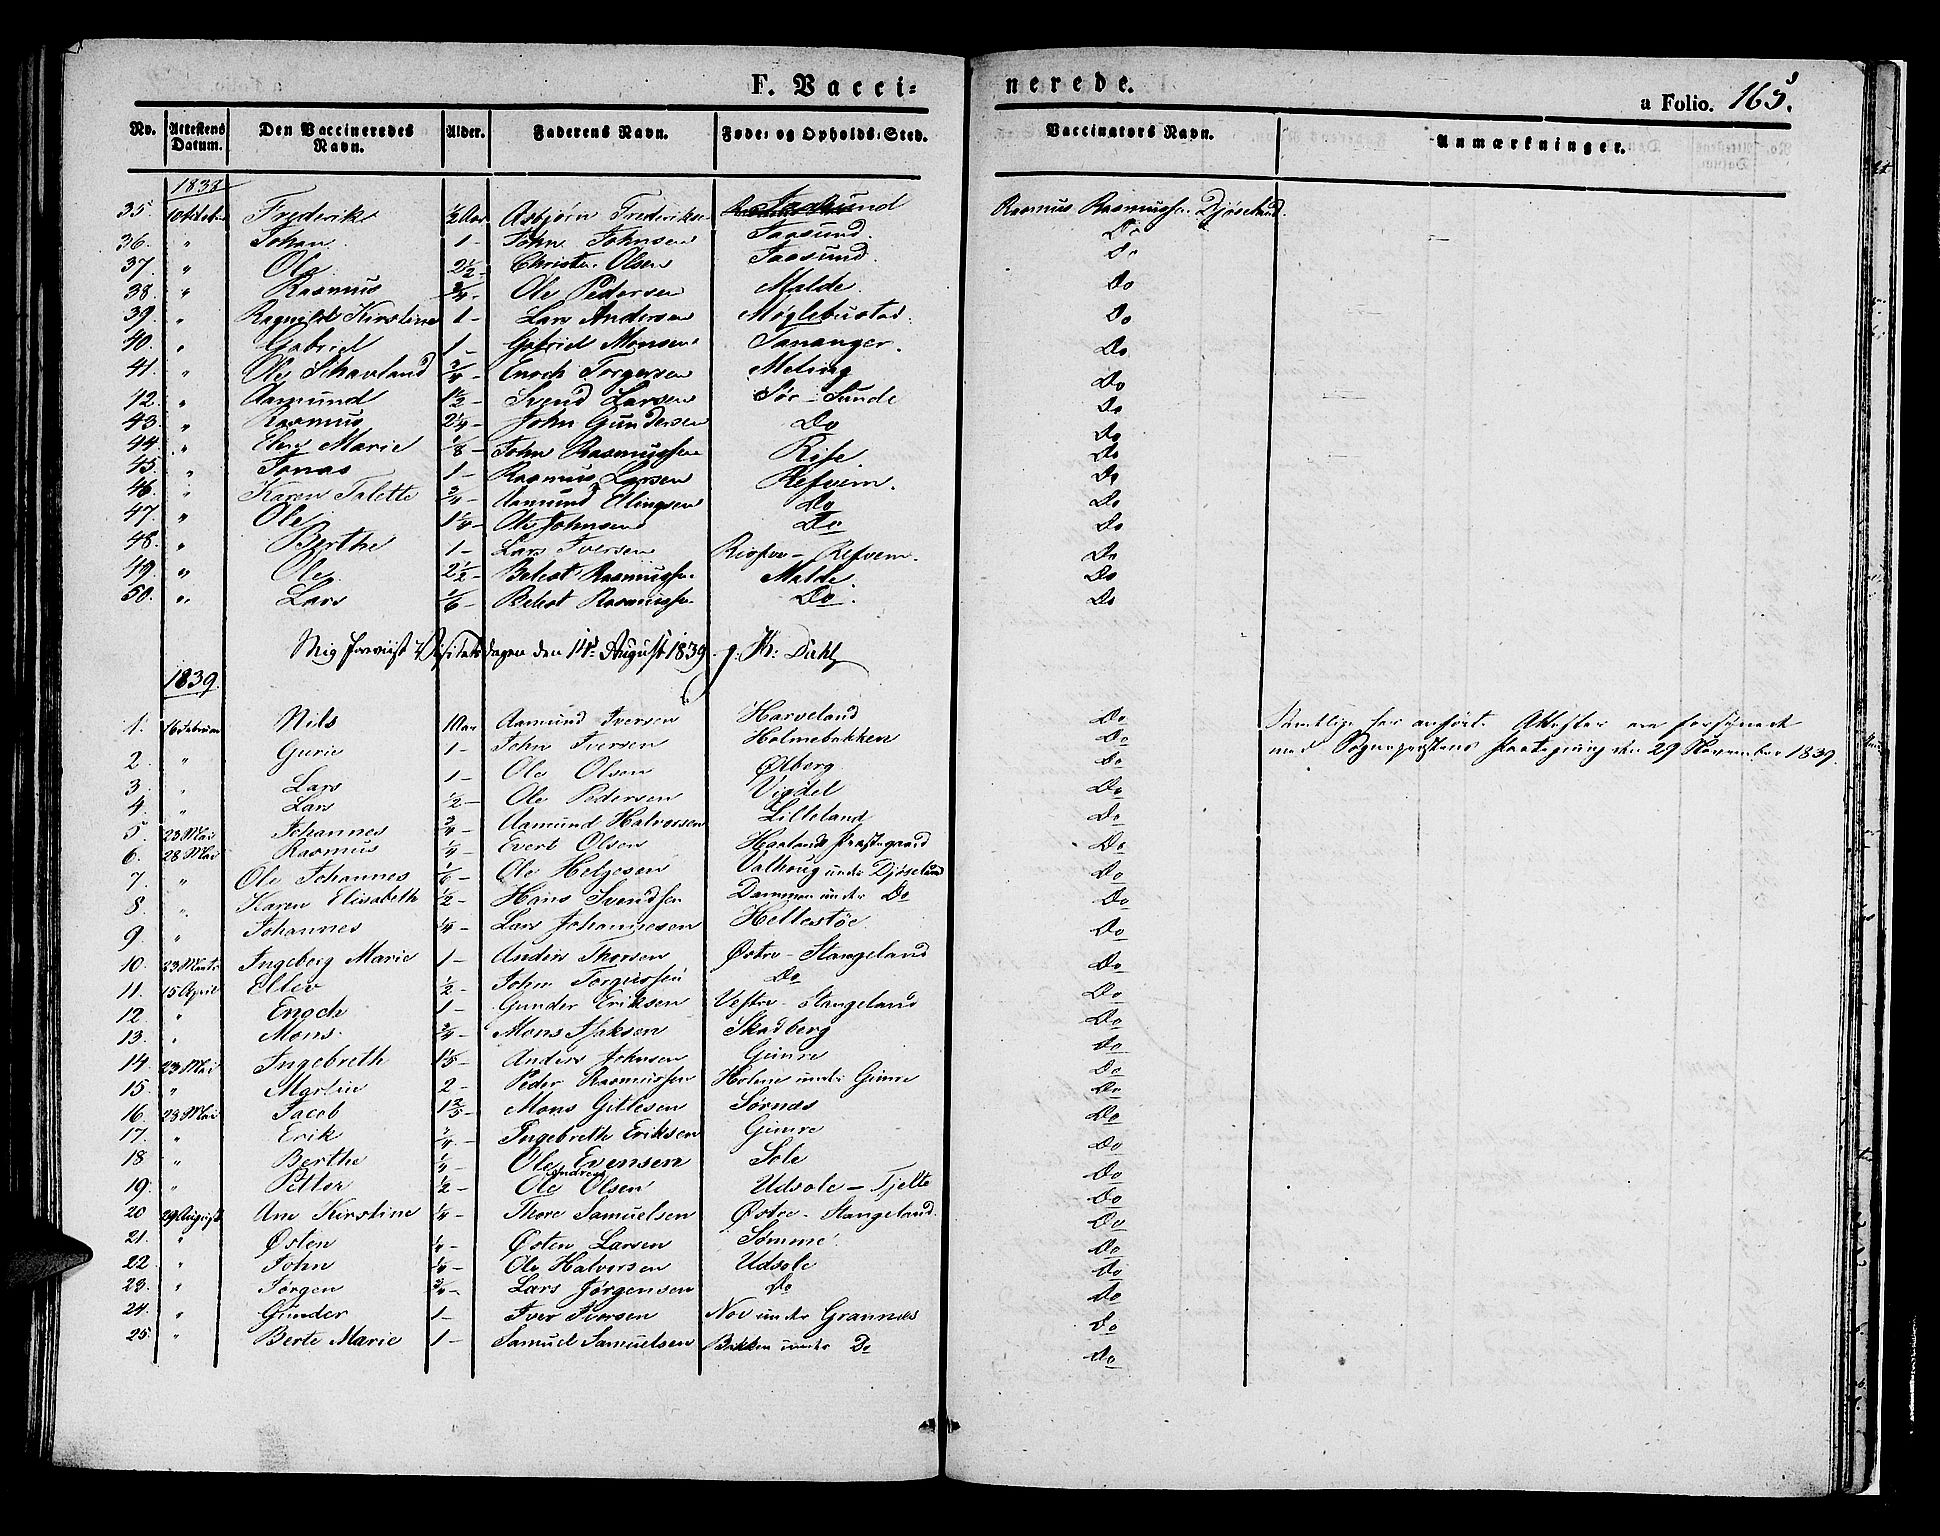 F. Vacci=nerede.
a Folio. 165.
No. | Attestens Datum. | Den Vaccineredes Navn. | Alder. | Faderens Navn. | Føde= og Opholds=Sted. | Vaccinators Navn. | Anmærkninger.
1838
35. 10 October Frederik ½ Aar Asbjørn Frederiks. Jaasund Rasmus Rasmussen Djøseland.
36. " Johan 1 - John Johnsen Jaasund. Do
37. " Ole 2½ - Christen Olsen Jaasund. Do
38. " Rasmus ¾ - Ole Pedersen Malde. Do
39. " Ragnild Kirstine 1 - Lars Andersen Møglebustad. Do
40. " Gabriel 1 - Gabriel Monsen Tananger. Do
41. " Ole Schavland ¾ - Enoch Torgersen Meling Do
42. " Aamund 1½ - Svend Larsen Sør-Sunde Do
43. " Rasmus 2¼ - John Gundersen Do Do
44. " Marie ⅛ - John Rasmussen Risa. Do
45. " Jonas 1 - Rasmus Larsen Refvem. Do
46. " Karen Talette ¾ - Aamund Ellingsen Do Do
47. " Ole 1¼ - Ole Johnsen Do Do
48. " Berthe 1 - Lars Iversen Refvem. Do
49. " Ole 2½ - Belest Rasmussen Malde. Do
50. " Lars ⅙ - Belest Rasmussen Do. Do
Mig foreviist Visitatsdagen den 14de August 1839. J. K: Dahl
1839.
1. 16 Februar Nils 1 Aar Aamund Iversen Harveland Do Samtlige her anført. Attester ere forsynede
2 " Gurie 1 - John Iversen Holmebakken Do med Sognepræstens Paategning den 29 November 1839.
3. " Lars 1 - Ole Olsen Ølberg Do
4. " Lars ½ - Ole Pedersen Vigdel Do
5. 23 Mai Johannes ¾ - Aamund Halvorsen Lilleland Do
6. 28 Mai Rasmus ¼ - Evert Olsen Haalands Præstegaard Do
7. " Ole Johannes ⅙ - Ole Helgesen Valhoug under Djøseland Do
8. " Karen Elisabeth ½ - Hans Svendsen Dammen under Do Do
9. " Johannes ¼ - Lars Johannesen Hellestøe Do
10. 23 Marts Ingeborg Marie 1 - Anders Thorsen Østre - Stangeland Do
11. 15 April Ellev ½ - John Torgiussen Do Do
12. " Enoch 1 - Gunder Eriksen Vestre - Stangeland Do
13. " Mons. ¾ - Mons Isaksen Skadberg Do
14. 23 Mai Ingebreth 1⅕ - Anders Johnsen Gimre Do
15. " Martin 2 - Peder Rasmussen Holme under Gimre Do
16. 28 Mai Jacob 1⅖ - Mons Gitlesen Sørnæs Do
17. " Erik ¼ - Ingebreth Eriksen Gimre Do
18 " Berthe ¼ - Ole Evensen Sole Do
19. " Petter ½ - Ole Andreas Olsen Udsole - Tjelte Do
20 29 August Ane Kirstine ¼ - Thore Samuelsen Østre - Stangeland. Do
21. " Østen ¼ - Østen Larsen Sømme Do
22. " John ¼ - Ole Halvorsen Udsole Do
23. " Jørgen ¾ - Lars Jørgensen Do Do
24. " Gunder 1 - Iver Iversen Nov under Grannæs Do
25. " Berte Marie 1 - Samuel Samuelsen Bakken under Do Do